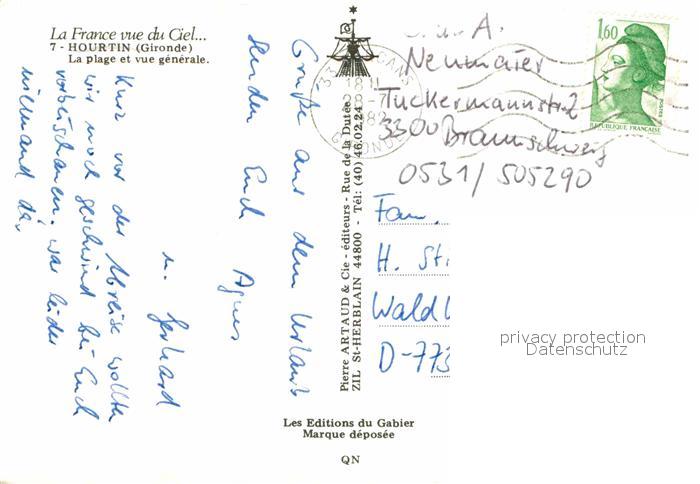 La France vue du Ciel...
7 - HOURTIN (Gironde)
La plage et vue générale.
Grüße aus dem Urlaub
senden Euch Agnes
u. Gerhard
Kurz vor der Abreise wollten
wir noch geschwind bei Euch
vorbeischauen, war leider
niemand da.
Pierre ARTAUD & Cie - éditeurs - Rue de la Dutée
ZIL St-HERBLAIN 44800 - Tél: (40) 46.02.24
Les Editions du Gabier
Marque déposée
QN
A.
Neumaier
Tuckermannstr. 2
3300 Braunschweig
0531/505290
1,60
POSTES
REPUBLIQUE FRANÇAISE
33
GIRONDE
Fam.
H. Sti
Wald
D-773
privacy protection
Datenschutz